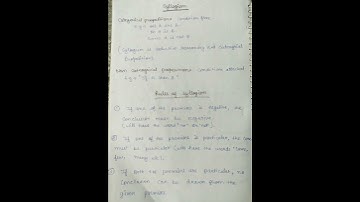 Syllogism
Categorical propositions: condition free
e.g - all A are B.
No A is B.
Some A is not B.
(Syllogism is deductive reasoning and categorical
Propositions)
Non categorical propositions: conditions attached
e.g "If
Rules of Syllogism
① If one of the premises is negative, the
conclusion must be negative.
(will have the word "no" or "not")
② If one of the premises is particular, the con
must be particular (will have the words "some,
few, many etc.)
③ If both the premises are particular, no
conclusion can be drawn from the
given premises